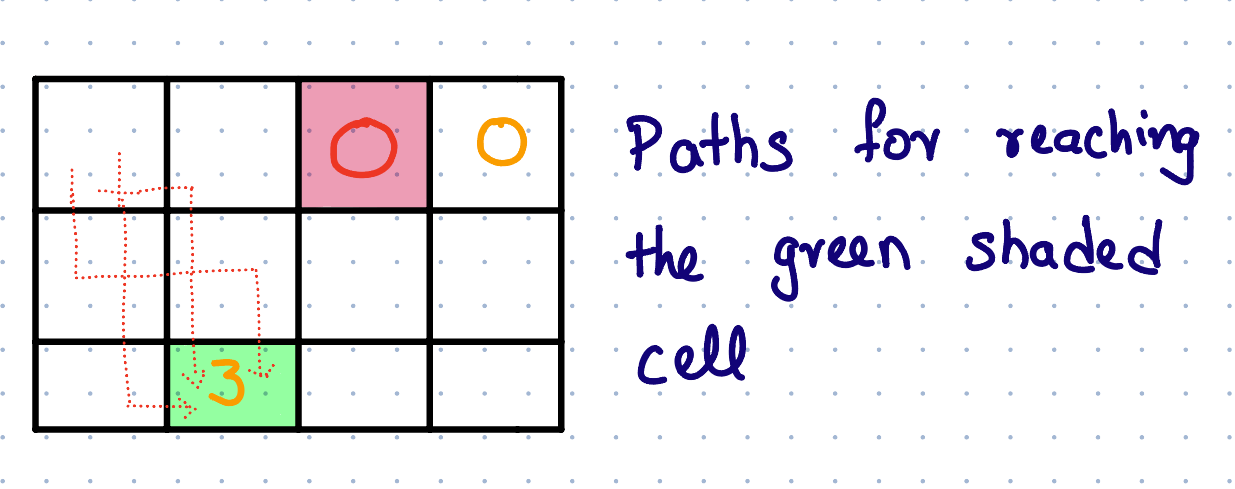 0 0
Paths for reaching
the green shaded
3
cell